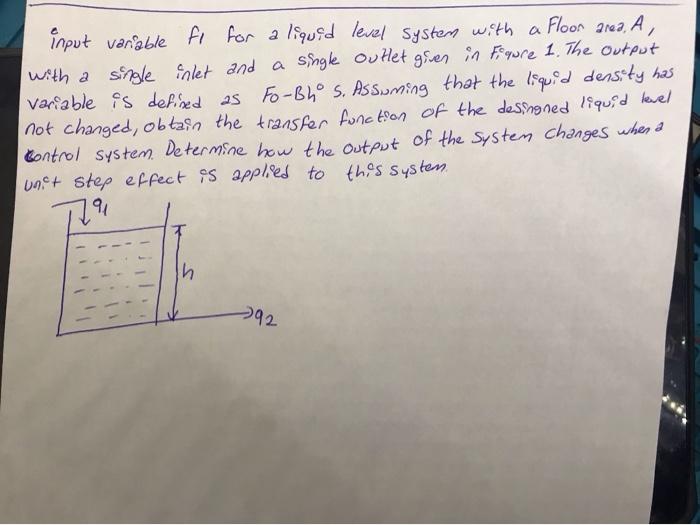 input variable f1 for a liquid level system with a Floor area, A,
with a single inlet and a single outlet given in Figure 1. The output
variable is defined as Fo-Bh° 5. Assuming that the liquid density has
not changed, obtain the transfer function of the desingned liquid level
control system. Determine how the output of the system changes when a
unit step effect is applied to this system.
q1
h
q2